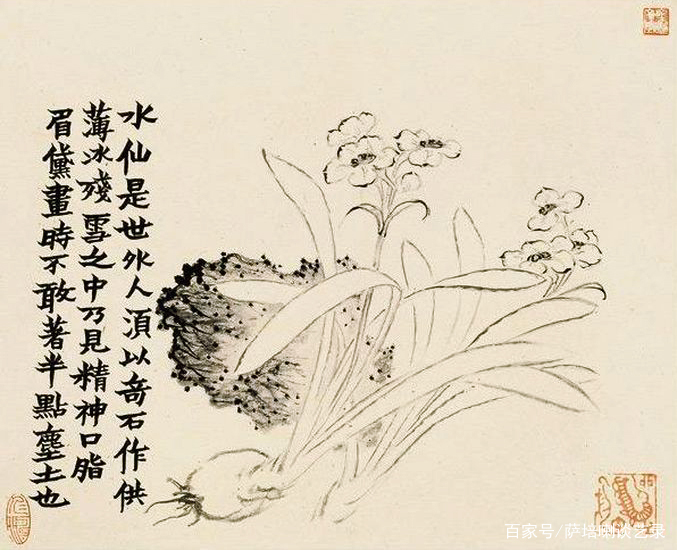 水仙是世外人須以奇石作供
薄冰殘雪之中乃見精神口脂
眉黛畫時不敢著半點塵土也
百家号/萨培喇谈艺录